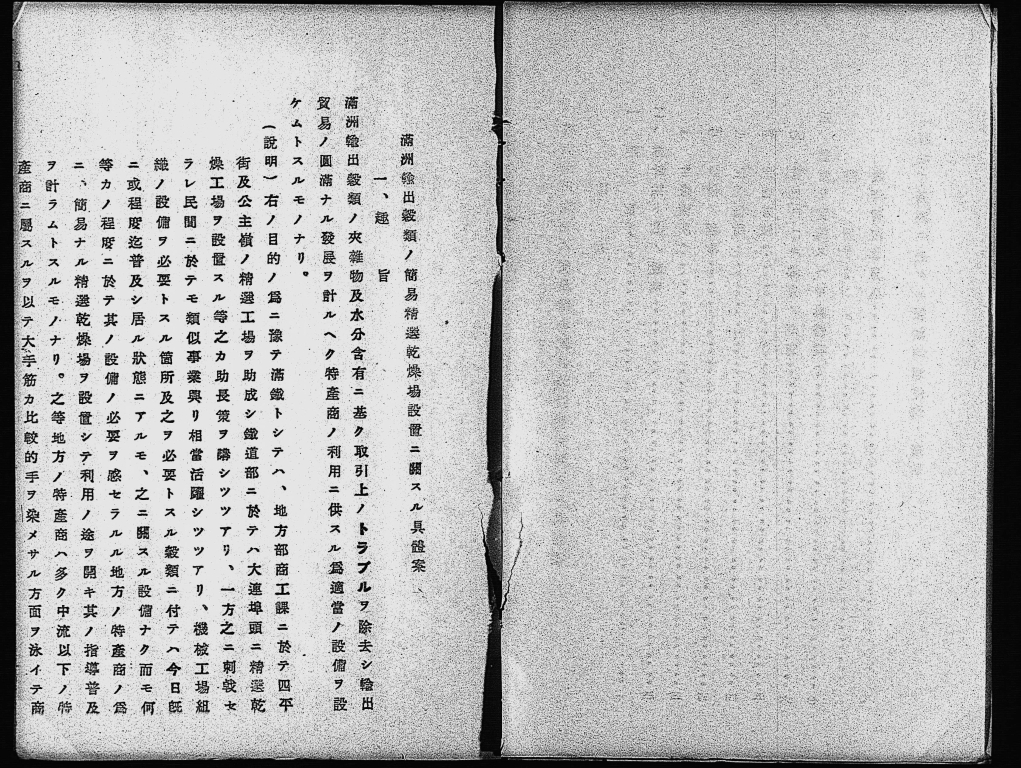 滿洲輸出穀類ノ簡易精選乾燥場設置ニ關スル具體案
一、趣旨
滿洲輸出穀類ノ夾雜物及水分含有ニ基ク取引上ノトラブルヲ除去シ輸出
貿易ノ圓滿ナル發展ヲ計ルヘク特產商ノ利用ニ供スル爲適當ノ設備ヲ設
ケムトスルモノナリ。
(說明) 右ノ目的ノ爲ニ豫テ滿鐵トシテハ、地方部商工課ニ於テ四平
街及公主嶺ノ精選工場ヲ助成シ鐵道部ニ於テハ大連埠頭ニ精選乾
燥工場ヲ設置スル等之カ助長策ヲ講シツツアリ、一方之ニ刺戟セ
ラレ民間ニ於テモ類似事業興リ相當活躍シツツアリ、機械工場組
織ノ設備ヲ必要トスル箇所及之ヲ必要トスル穀類ニ付テハ今日既
ニ或程度迄普及シ居ル狀態ニアルモ、之ニ關スル設備ナク而モ何
等カノ程度ニ於テ其ノ設備ノ必要ヲ感セラルル地方ノ特產商ノ爲
ニ、簡易ナル精選乾燥場ヲ設置シテ利用ノ途ヲ開キ其ノ指導普及
ヲ計ラムトスルモノナリ。之等地方ノ特產商ハ多ク中流以下ノ特
產商ニ屬スルヲ以テ大手筋カ比較的手ヲ染メサル方面ヲ泳イテ商
1